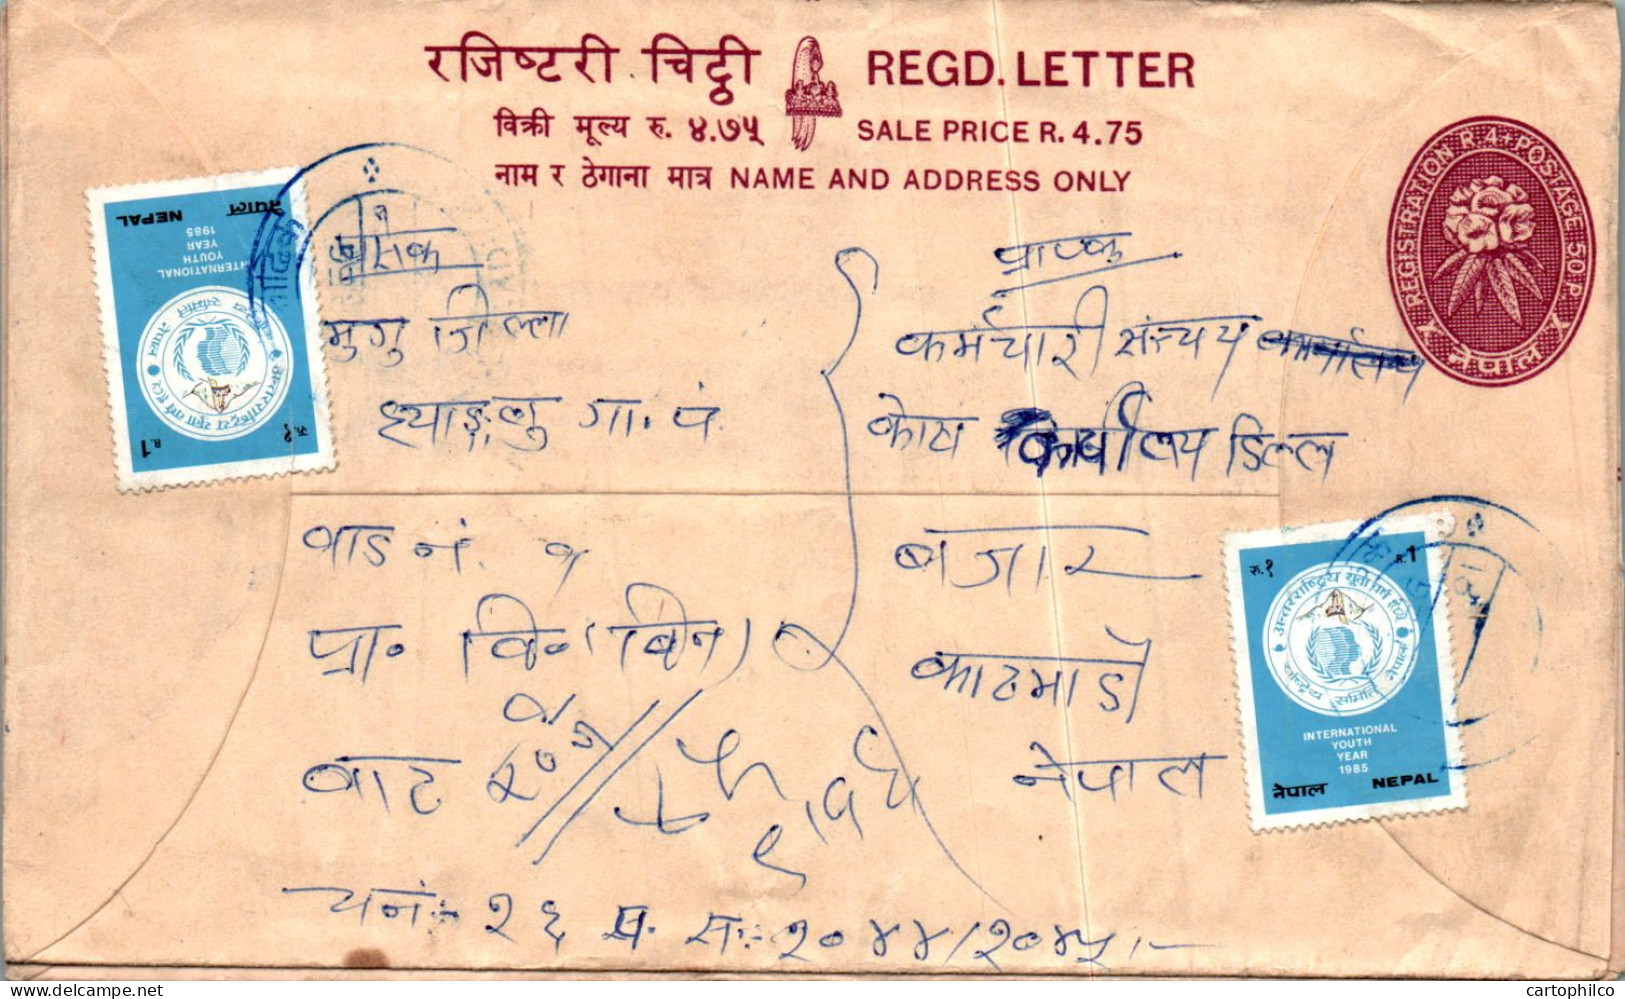 रजिष्टरी चिठ्ठी REGD. LETTER
विक्री मूल्य रु. ४.७५ SALE PRICE R. 4.75
नाम र ठेगाना मात्र NAME AND ADDRESS ONLY
REGISTRATION R.4 + POSTAGE 50 P.
नेपाल
नेपाल NEPAL
INTERNATIONAL
YOUTH
YEAR
1985
अन्तरराष्ट्रिय युवा वर्ष १९८५
राष्ट्रिय समिति नेपाल
रु.१ R.1
मुगु जिल्ला
गा. पं.
वाड नं. १
प्रा. वि. (बिन)
बाट
च.नं. २६ प. स. २०४४/२०४५
प्रापक
कर्मचारी संञ्चय
कोष कार्यालय डिल्ल
बजार
काठमाडौं
नेपाल
रु.१ R.1
अन्तरराष्ट्रिय युवा वर्ष १९८५
राष्ट्रिय समिति नेपाल
INTERNATIONAL
YOUTH
YEAR
1985
नेपाल NEPAL
delcampe.net
cartophilco